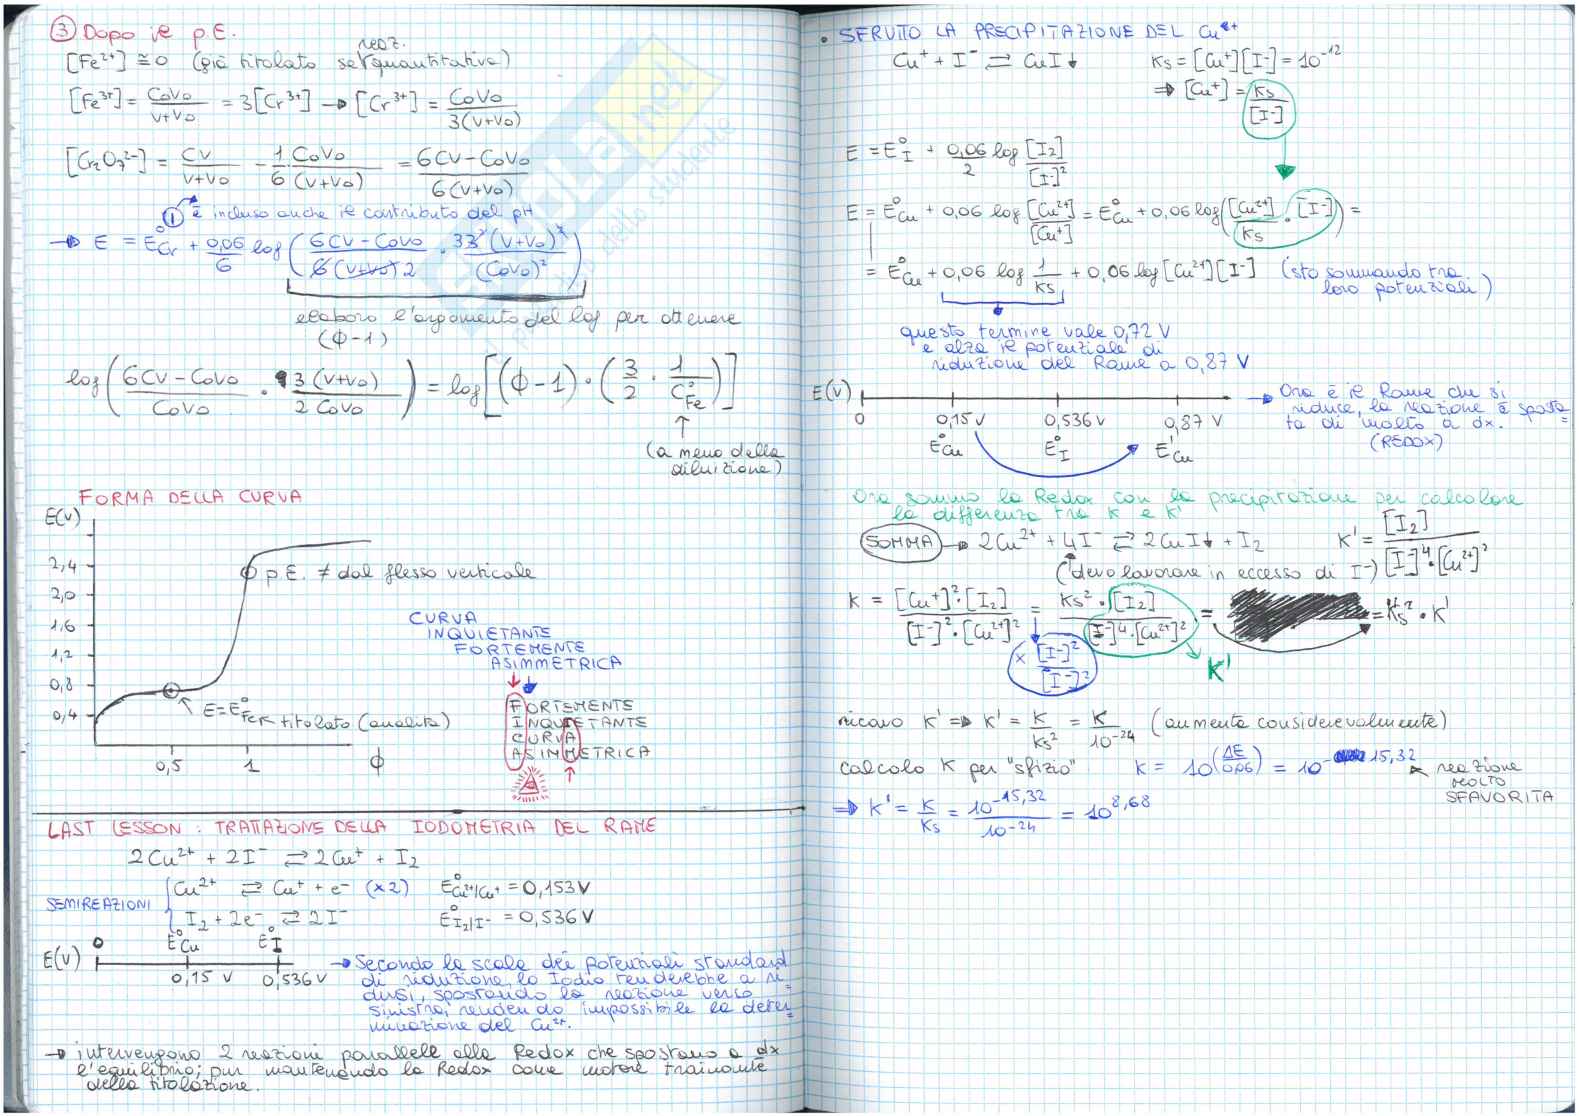 ③ Dopo il p.E.
[Fe²⁺] ≅ 0 (già titolato se reaz. quantitativa)
[Fe³⁺] = CoVo/(V+Vo) = 3[Cr³⁺] → [Cr³⁺] = CoVo/3(V+Vo)
[Cr₂O₇²⁻] = CV/(V+Vo) - 1/6 CoVo/(V+Vo) = (6CV-CoVo)/6(V+Vo)
① è incluso anche il contributo del pH
→ E = E°Cr + 0,06/6 log ( (6CV-CoVo)/(6(V+Vo)2) · 3 3² (V+Vo)²/(CoVo)² )
elaboro l'argomento del log per ottenere
(Φ-1)
log ( (6CV-CoVo)/CoVo · 3(V+Vo)/2CoVo ) = log [ (Φ-1) · ( 3/2 · 1/C°Fe ) ]
↑
(a meno della
diluizione)
FORMA DELLA CURVA
E(V)
2,4
2,0
1,6
1,2
0,8
0,4
p.E. ≠ dal flesso verticale
CURVA
INQUIETANTE
FORTEMENTE
ASIMMETRICA
E=E°Fe × titolato (analita)
FORTEMENTE
INQUIETANTE
CURVA
ASIMMETRICA
0,5 1 Φ
LAST LESSON : TRATTAZIONE DELLA IODOMETRIA DEL RAME
2Cu²⁺ + 2I⁻ ⇄ 2Cu⁺ + I₂
SEMIREAZIONI
Cu²⁺ ⇄ Cu⁺ + e⁻ (×2) E°Cu²⁺/Cu⁺ = 0,153V
I₂ + 2e⁻ ⇄ 2I⁻ E°I₂/I⁻ = 0,536 V
0 E°Cu E°I
E(V)
0,15 V 0,536 V
→ Secondo la scala dei potenziali standard
di riduzione, lo Iodio tenderebbe a ri=
dursi, spostando la reazione verso
sinistra, rendendo impossibile la deter=
minazione del Cu²⁺.
→ intervengono 2 reazioni parallele alla Redox che spostano a dx
l'equilibrio; pur mantenendo la Redox come motore trainante
della titolazione.
• SFRUTTO LA PRECIPITAZIONE DEL Cu⁺
Cu⁺ + I⁻ ⇄ CuI↓ Ks = [Cu⁺][I⁻] = 10⁻¹²
⇒ [Cu⁺] = Ks/[I⁻]
E = E°I + 0,06/2 log [I₂]/[I⁻]²
E = E°Cu + 0,06 log [Cu²⁺]/[Cu⁺] = E°Cu + 0,06 log ( [Cu²⁺]/Ks · [I⁻] ) =
= E°Cu + 0,06 log 1/Ks + 0,06 log [Cu²⁺][I⁻] (sto sommando tra
loro potenziali)
questo termine vale 0,72 V
e alza il potenziale di
riduzione del Rame a 0,87 V
E(V)
0 0,15 V 0,536 V 0,87 V
E°Cu E°I E'Cu
→ Ora è il Rame che si
riduce, la reazione è sposta=
ta di molto a dx.
(REDOX)
Ora sommo la Redox con la precipitazione per calcolare
la differenza tra K e K'
SOMMA → 2Cu²⁺ + 4I⁻ ⇄ 2CuI↓ + I₂ K' = [I₂]/[I⁻]⁴·[Cu²⁺]²
(devo lavorare in eccesso di I⁻)
K = [Cu⁺]²·[I₂]/[I⁻]²·[Cu²⁺]² = Ks²·[I₂]/[I⁻]⁴·[Cu²⁺]² = = Ks²·K'
× [I⁻]²/[I⁻]²
K'
ricavo K' ⇒ K' = K/Ks² = K/10⁻²⁴ (aumenta considerevolmente)
calcolo K per "sfizio" K = 10^(ΔE/0,06) = 10⁻¹⁵,³² ↖ reazione
MOLTO
SFAVORITA
⇒ K' = K/Ks = 10⁻¹⁵,³²/10⁻²⁴ = 10⁸,⁶⁸